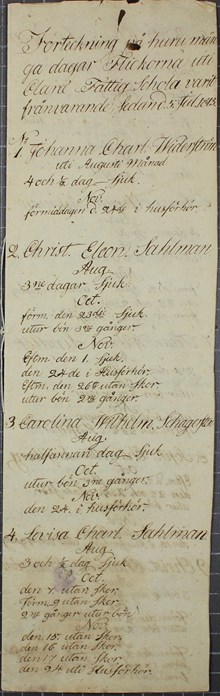 Förteckning på huru mån-
ga dagar Flickorna uti
Claræ Fattig Schola varit
frånvarande sedan d. 5 Juli 1813.
N:1. Johanna Charl. Widerström
uti Augusti Månad
4 och ½ dag Sjuk.
Nov:
förmiddagen d. 24de i husförhör.
2. Christ. Eleon. Sahlman
Aug.
3ne dagar Sjuk.
Oct.
förm. den 23de Sjuk.
utur bön 3ne gånger.
Nov.
Eftm. den 1. Sjuk.
den 24de i Husförhör.
Eftm. den 26 utan Skor.
utur bön 2ne gånger.
3. Carolina Wilhelm.
Aug.
halfannan dag Sjuk
Oct.
utur bön 3ne gånger.
Nov.
den 24. i husförhör.
4. Lovisa Charl. Sahlman
Aug.
3 och ½ dag Sjuk
Oct.
den 7. utan Skor.
Förm. 9 utan Skor.
9ne gånger utur bön
Nov.
den 15. utan Skor.
den 16 utan Skor.
den 17 utan Skor.
den 24 uti Husförhör.